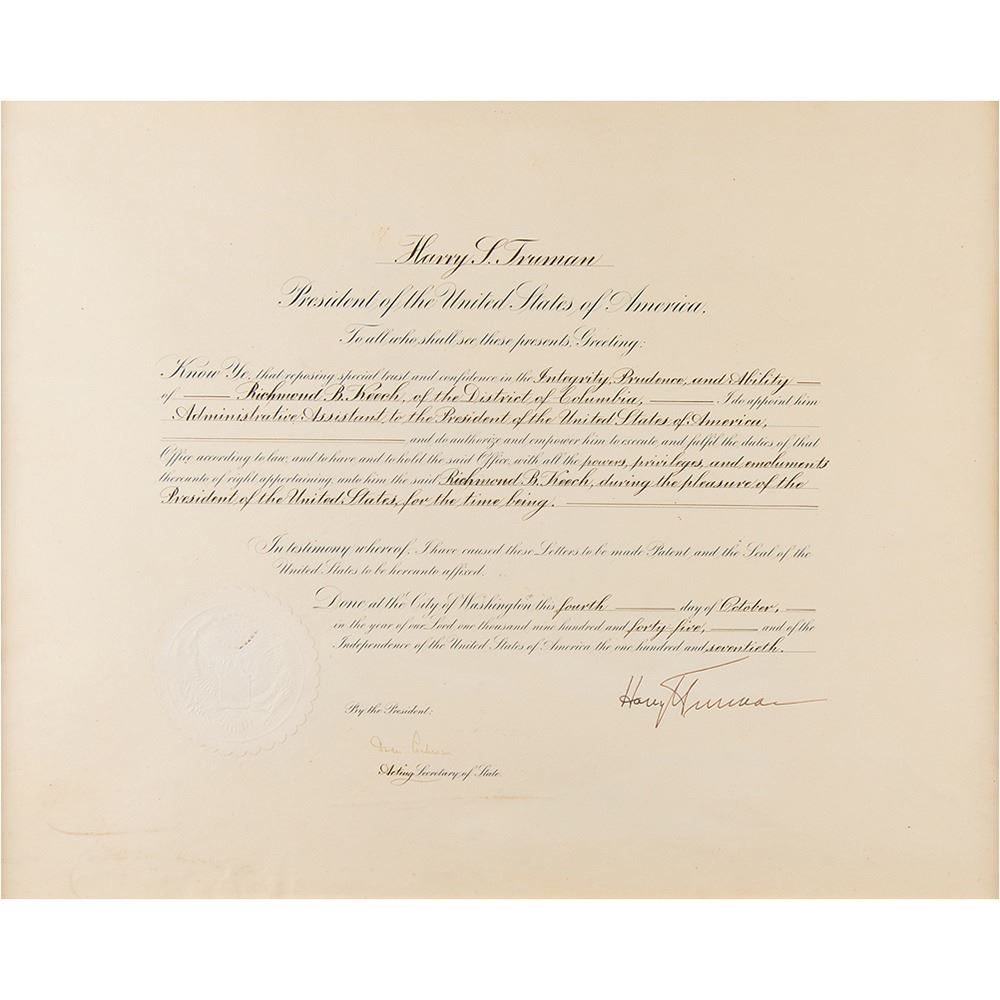 Harry S. Truman
President of the United States of America.
To all who shall see these presents, Greeting:
Know Ye, that reposing special trust and confidence in the Integrity, Prudence, and Ability
of Richmond B. Keech, of the District of Columbia, I do appoint him
Administrative Assistant to the President of the United States of America,
and do authorize and empower him to execute and fulfil the duties of that
Office according to law, and to have and to hold the said Office, with all the powers, privileges, and emoluments
thereunto of right appertaining, unto him the said Richmond B. Keech, during the pleasure of the
President of the United States, for the time being.
In testimony whereof, I have caused these Letters to be made Patent, and the Seal of the
United States to be hereunto affixed.
Done at the City of Washington this fourth day of October,
in the year of our Lord one thousand nine hundred and forty-five, and of the
Independence of the United States of America the one hundred and seventieth.
Harry S Truman
By the President:
Acting Secretary of State.